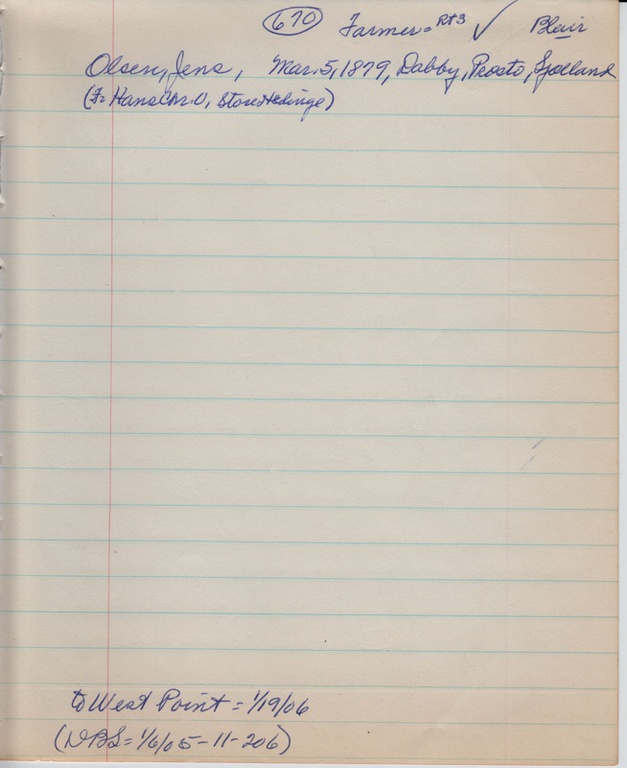 670 Farmer = Rt 3 ✓ Blair
Olsen, Jens, Mar. 5, 1879, Dabby, Prosto, Sjolland
(F: Hans Chr. O, Store Hedinge)
to West Point = 1/19/06
(DBS = 1/6/05-11-206)